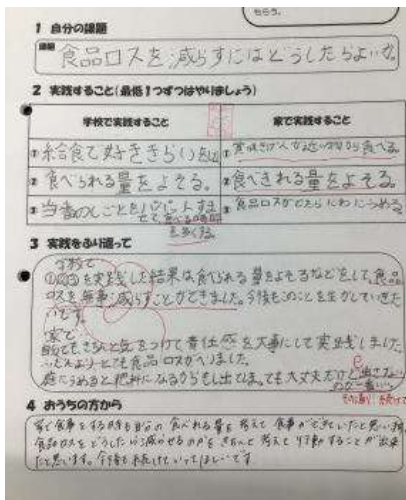 もらう。
1 自分の課題
課題 食品ロスを減らすにはどうしたらよいか。
2 実践すること(最低1つずつはやりましょう)
学校で実践すること 家で実践すること
① 給食で好ききらいをせ ① 賞味きげんが近い物から食べる。
② 食べられる量をよそる。 ② 食べきれる量をよそる。
③ 当番のしごとを ③ 食品ロスがでたらにわにうめる。
せて、食べる時間
を多くする。
3 実践をふり返って
学校で
を実践した結果は食べられる量をよそるなどをして、食品
ロスを無事減らすことができました。今後もこのことを生かしていきた
いです。
家で
家でもきちんと気をつけて責任感を大事にして実践しました。
いつもよりとても食品ロスがへりました。
庭にうめると肥料になるからもし出てしまっても大丈夫だけど出さない
のが一番いい。
その通り!続けて
4 おうちの方から
家で食事をする時も自分の食べれる量を考えて食事ができていたと思います。
食品ロスをどうしたら減らせるのかをきちんと考えて行動することが出来
たと思います。今後も続けていってほしいです